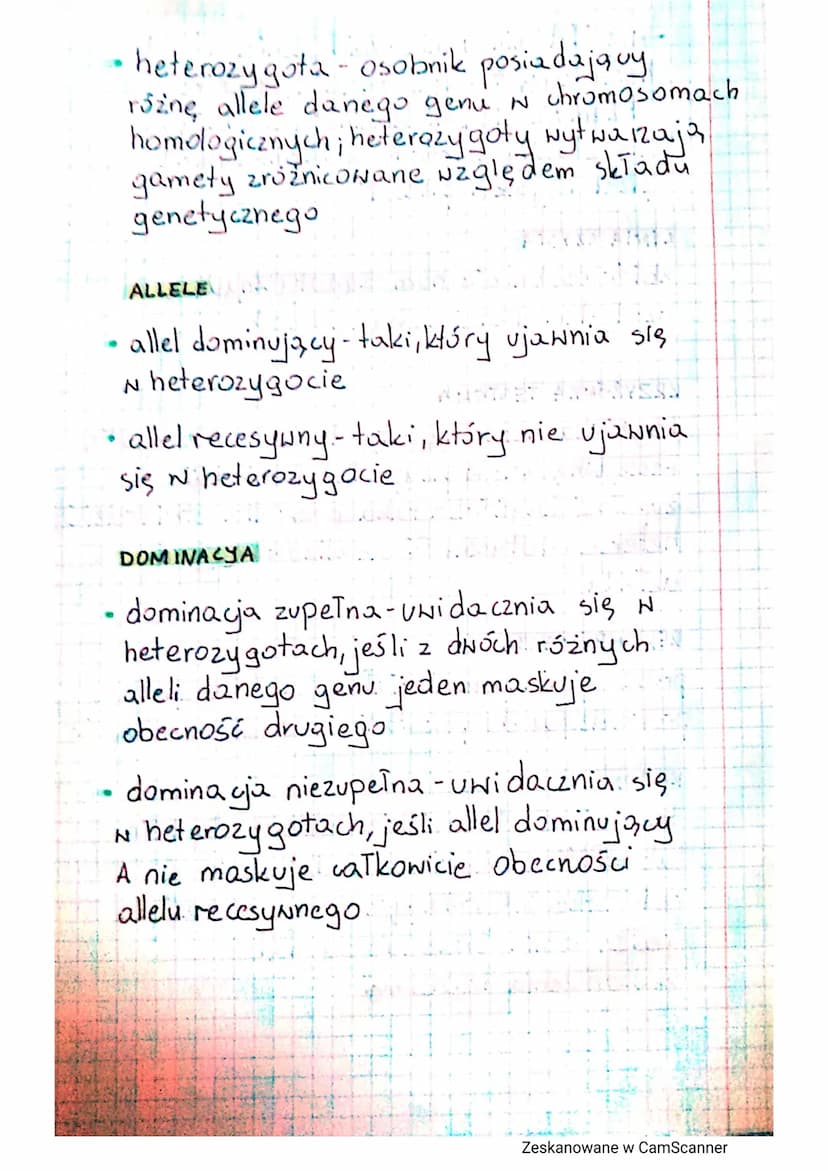 • heterozygota - osobnik posiadający
różnę allele danego genu w chromosomach
homologicznych; heterozygoty wytwarzają
gamety zróżnicowane względem składu
genetycznego
ALLELE
• allel dominujący - taki, który ujawnia się
w heterozygocie
• allel recesywny - taki, który nie ujawnia
się w heterozygocie
DOMINACJA
• dominacja zupełna - uwidacznia się w
heterozygotach, jeśli z dwóch różnych
alleli danego genu jeden maskuje
obecność drugiego
• dominacja niezupełna - uwidacznia się
w heterozygotach, jeśli allel dominujący
A nie maskuje całkowicie obecności
allelu recesywnego
Zeskanowane w CamScanner